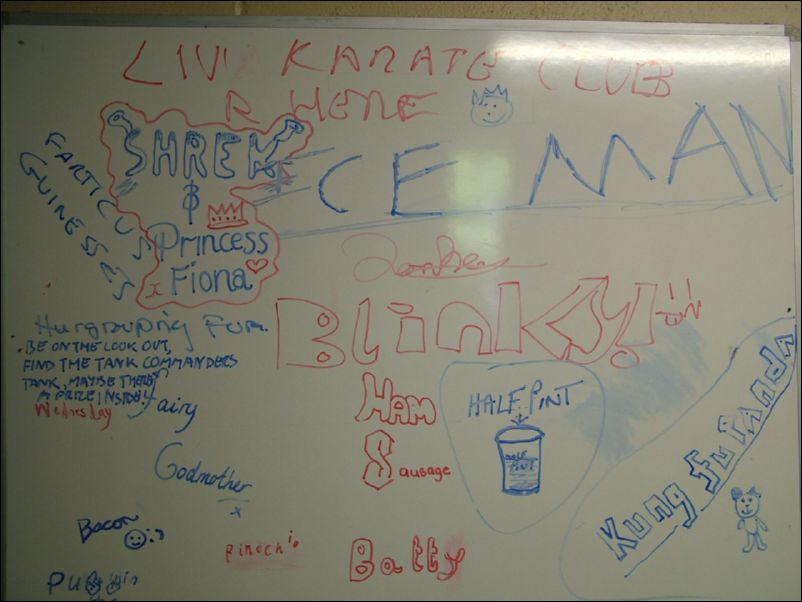 LIVI KARATE CLUB
R HERE
SHREK
&
Princess
Fiona
x
ICE MAN
FARTICUS
GUINESS
Blinky!
BE ON THE LOOK OUT,
FIND THE TANK COMMANDERS
TANK, MAYBE THERES
A PRIZE INSIDE!
Wednesday
Fairy
Godmother
x
HAM
Sausage
HALF PINT
HALF
PINT
Kung fu Panda
Bacon
Pinochio
Batty